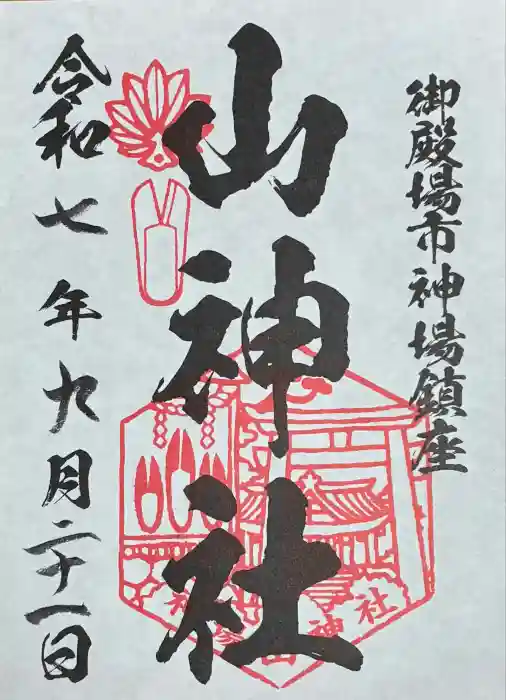 御殿場市神場鎮座
山神社
令和七年九月二十一日